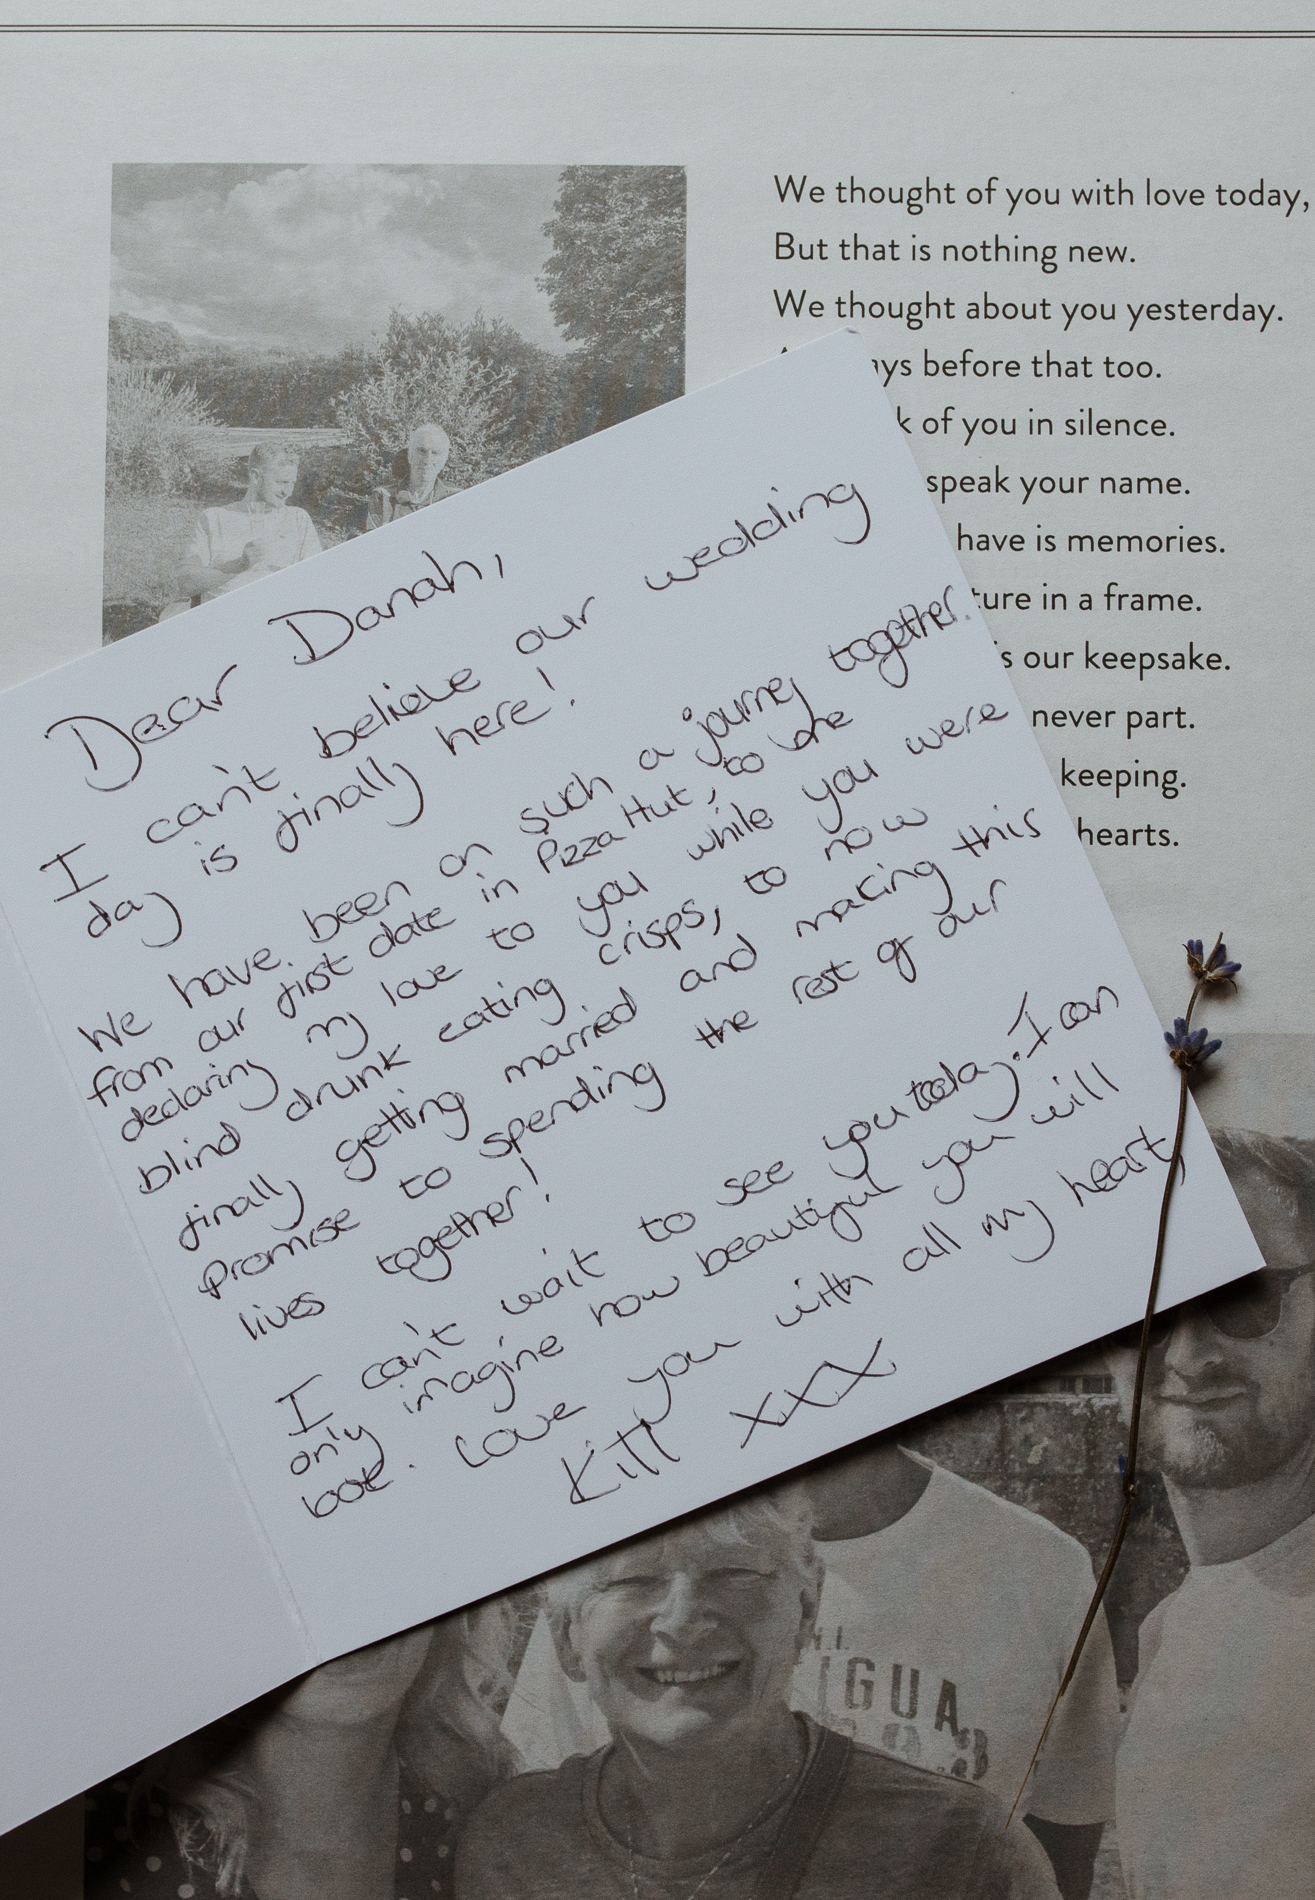 We thought of you with love today,
But that is nothing new.
We thought about you yesterday.
ys before that too.
k of you in silence.
speak your name.
have is memories.
ture in a frame.
s our keepsake.
never part.
keeping.
hearts.
Dear Danah,
I can't believe our wedding
day is finally here!
We have been on such a journey together.
from our first date in Pizza Hut, to the
declaring my love to you while you were
blind drunk eating crisps, to now
finally getting married and making this
promise to spending the rest of our
lives together!
I can't wait to see you today. I can
only imagine how beautiful you will
look. Love you with all my heart,
XXX
IGUA